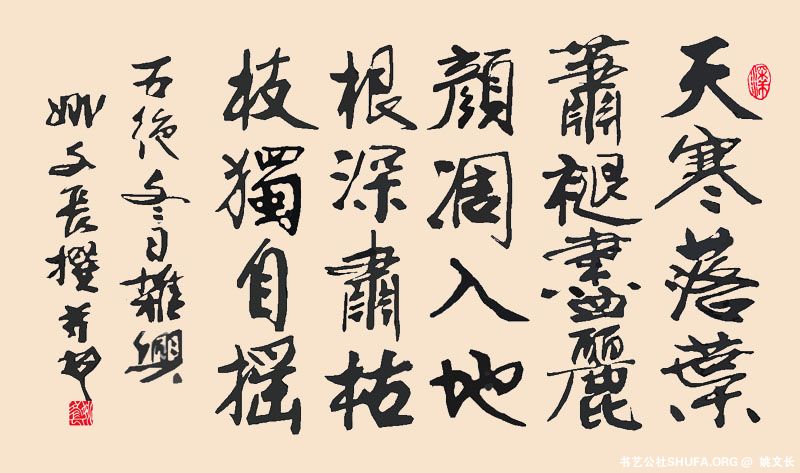 天寒落葉
蕭褪盡麗
顏凋入地
根深肅枯
枝獨自摇
五絶冬日雜興
姚文長撰并书
书艺公社SHUFA.ORG @ 姚文长